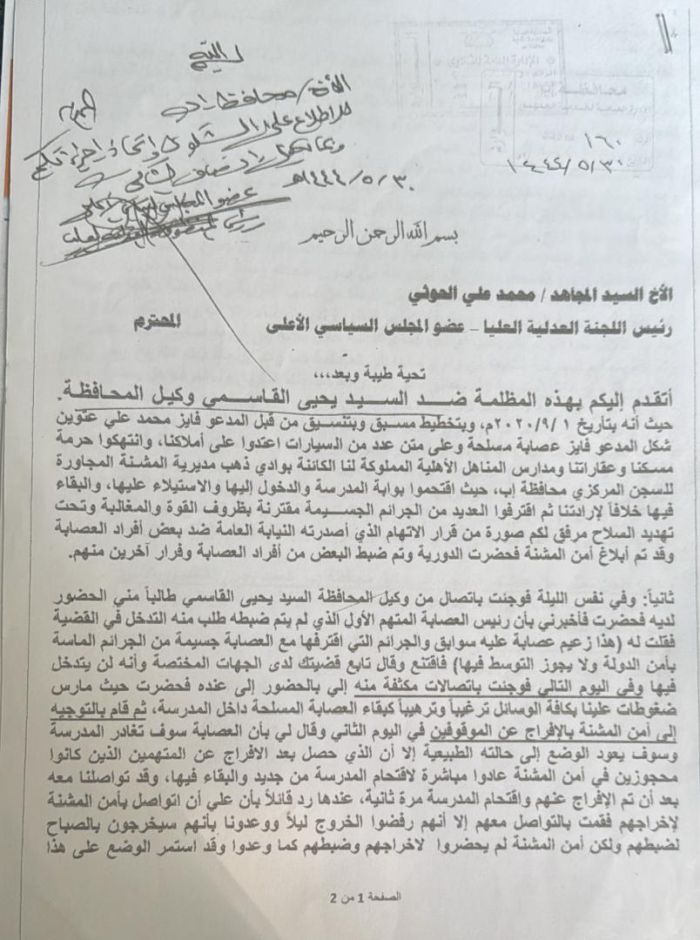 محافظة إب
١٦٠
١٤٤٤/٥/٣٠
الأخ/ محافظ إب
للاطلاع على الشكوى واتخاذ إجراءاتكم
١٤٤٤/٥/٣٠هـ
بسم الله الرحمن الرحيم
الأخ السيد المجاهد / محمد علي الحوثي
رئيس اللجنة العدلية العليا – عضو المجلس السياسي الأعلى المحترم
تحية طيبة وبعد،،،
أتقدم إليكم بهذه المظلمة ضد السيد يحيى القاسمي وكيل المحافظة.
حيث أنه بتاريخ ٢٠٢٠/٩/١م، وبتخطيط مسبق وبتنسيق من قبل المدعو فايز محمد علي عتوين
شكل المدعو فايز عصابة مسلحة وعلى متن عدد من السيارات اعتدوا على أملاكنا، وانتهكوا حرمة
مسكنا وعقاراتنا ومدارس المناهل الأهلية المملوكة لنا الكائنة بوادي ذهب مديرية المشنة المجاورة
للسجن المركزي محافظة إب، حيث اقتحموا بوابة المدرسة والدخول إليها والاستيلاء عليها، والبقاء
فيها خلافاً لإرادتنا ثم اقترفوا العديد من الجرائم الجسيمة مقترنة بظروف القوة والمغالبة وتحت
تهديد السلاح مرفق لكم صورة من قرار الاتهام الذي أصدرته النيابة العامة ضد بعض أفراد العصابة
وقد تم أبلاغ أمن المشنة فحضرت الدورية وتم ضبط البعض من أفراد العصابة وفرار آخرين منهم.
ثانياً: وفي نفس الليلة فوجئت باتصال من وكيل المحافظة السيد يحيى القاسمي طالباً مني الحضور
لديه فحضرت فأخبرني بأن رئيس العصابة المتهم الأول الذي لم يتم ضبطه طلب منه التدخل في القضية
فقلت له (هذا زعيم عصابة عليه سوابق والجرائم التي اقترفها مع العصابة جسيمة من الجرائم الماسة
بأمن الدولة ولا يجوز التوسط فيها) فاقتنع وقال تابع قضيتك لدى الجهات المختصة وأنه لن يتدخل
فيها وفي اليوم التالي فوجئت باتصالات مكثفة منه إلي بالحضور إلى عنده فحضرت حيث مارس
ضغوطات علينا بكافة الوسائل ترغيباً وترهيباً كبقاء العصابة المسلحة داخل المدرسة، ثم قام بالتوجيه
إلى أمن المشنة بالإفراج عن الموقوفين في اليوم الثاني وقال لي بأن العصابة سوف تغادر المدرسة
وسوف يعود الوضع إلى حالته الطبيعية إلا أن الذي حصل بعد الافراج عن المتهمين الذين كانوا
محجوزين في أمن المشنة عادوا مباشرة لاقتحام المدرسة من جديد والبقاء فيها، وقد تواصلنا معه
بعد أن تم الإفراج عنهم واقتحام المدرسة مرة ثانية، عندها رد قائلاً بأن علي أن اتواصل بأمن المشنة
لإخراجهم فقمت بالتواصل معهم إلا أنهم رفضوا الخروج ليلاً ووعدونا بأنهم سيخرجون بالصباح
لضبطهم ولكن أمن المشنة لم يحضروا لاخراجهم وضبطهم كما وعدوا وقد استمر الوضع على هذا
الصفحة 1 من 2